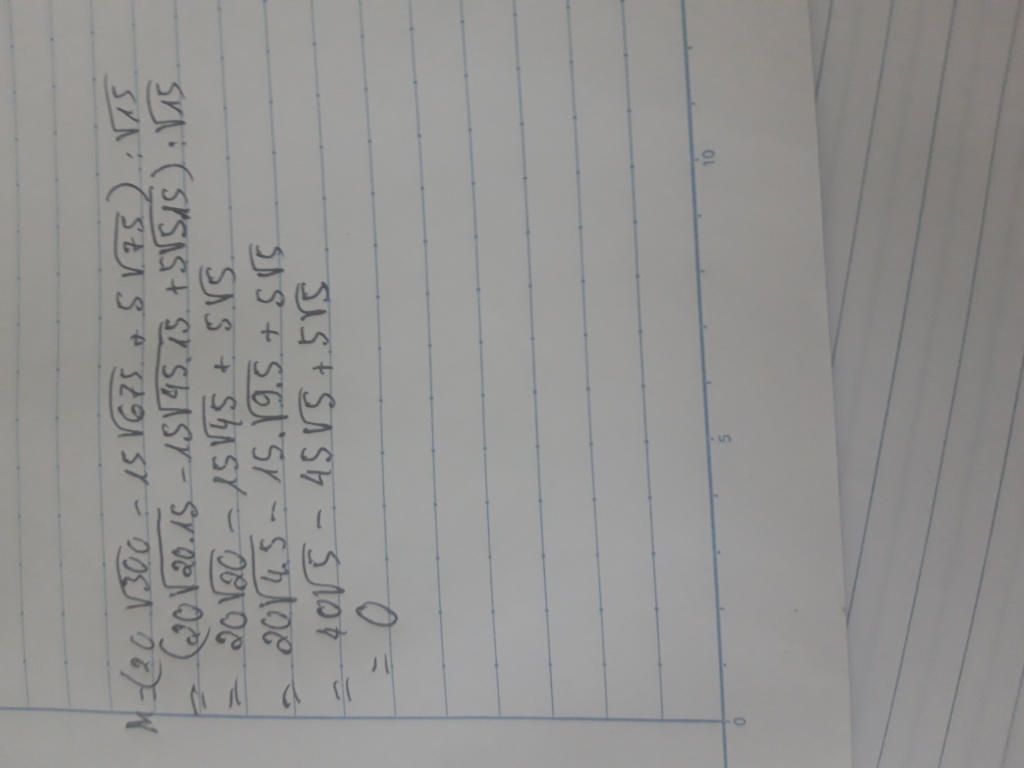 M=(20√300 - 15√675 + 5√75) : √15
= (20√20.15 - 15√45.15 + 5√5.15) : √15
= 20√20 - 15√45 + 5√5
= 20√4.5 - 15.√9.5 + 5√5
= 40√5 - 45√5 + 5√5
= 0
0 5 10